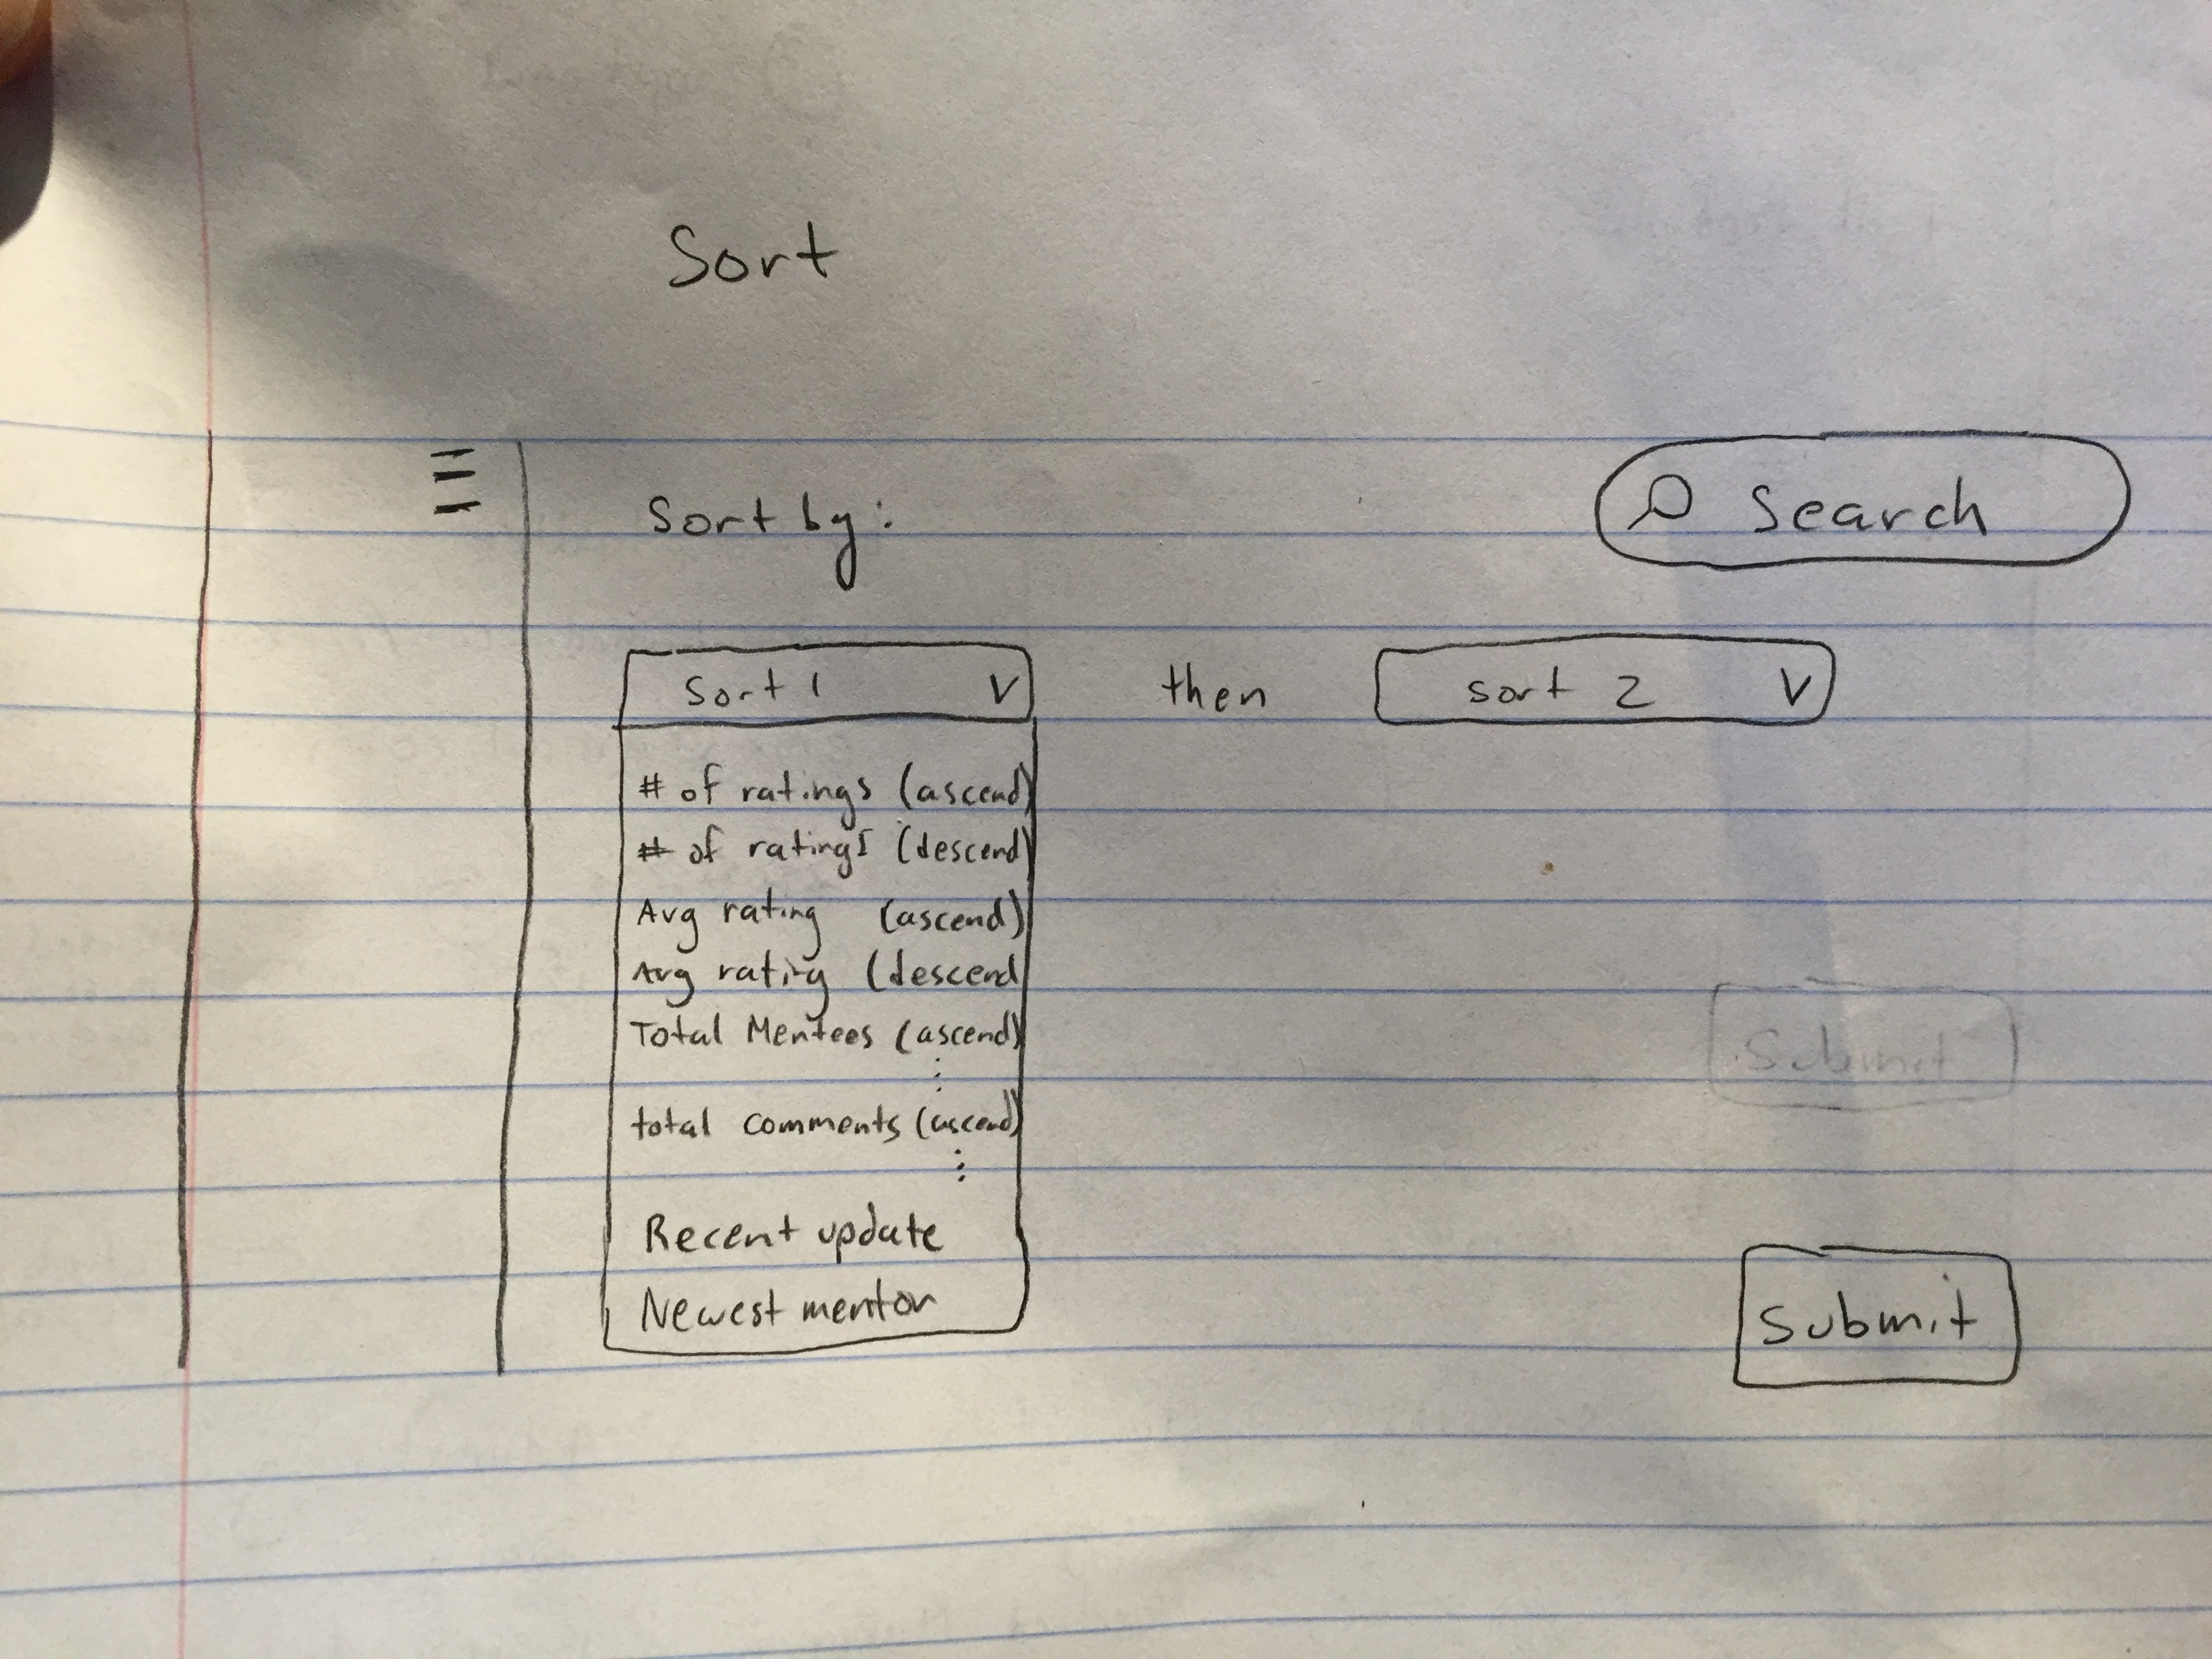 Sort
Sort by:
Search
Sort 1 V then sort 2 V
# of ratings (ascend)
# of ratings (descend)
Avg rating (ascend)
Avg rating (descend
Total Mentees (ascend)
⋮
total comments (ascend)
⋮
Recent update
Newest mentor
Submit
Submit